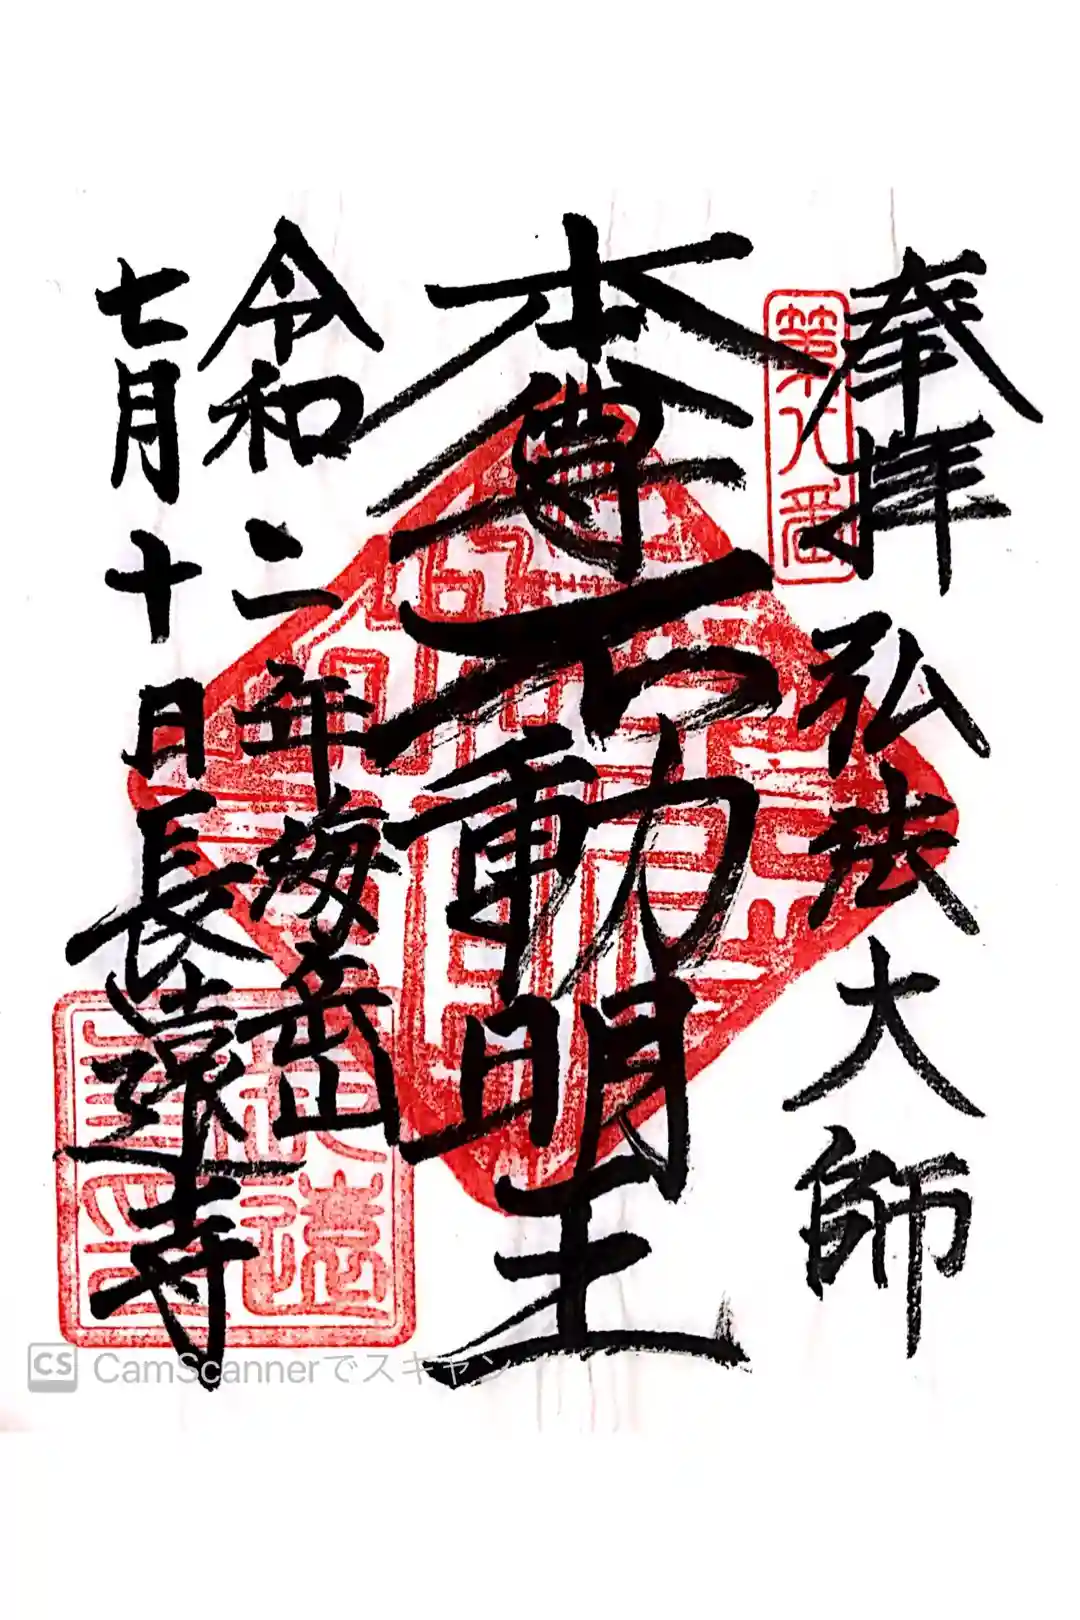 奉拝 弘法大師
第八番
本尊不動明王
令和二年 海岳山
七月十日 長遠寺
CS CamScannerでスキャン